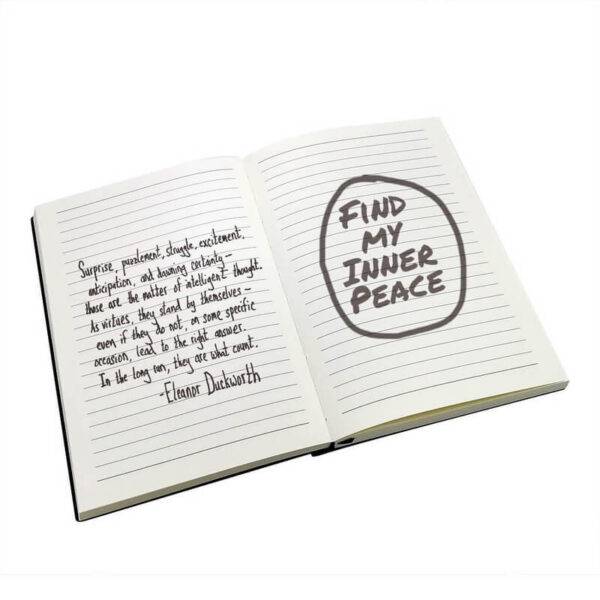 Surprise, puzzlement, struggle, excitement,
anticipation, and dawning certainty—
those are the matter of intelligent thought.
As virtues, they stand by themselves—
even if they do not, on some specific
occasion, lead to the right answer.
In the long run, they are what count.
-Eleanor Duckworth
FIND
MY
INNER
PEACE